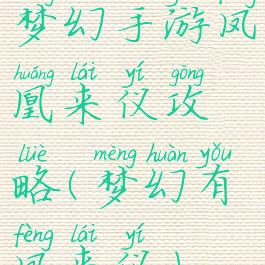 梦幻手游凤
huáng lái yí gōng
凰来仪攻
lüè mèng huàn yǒu
略(梦幻有
fèng lái yí
凤来仪)